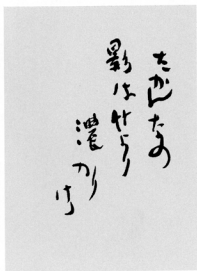 たかんなの
影は竹より
濃かり
けり